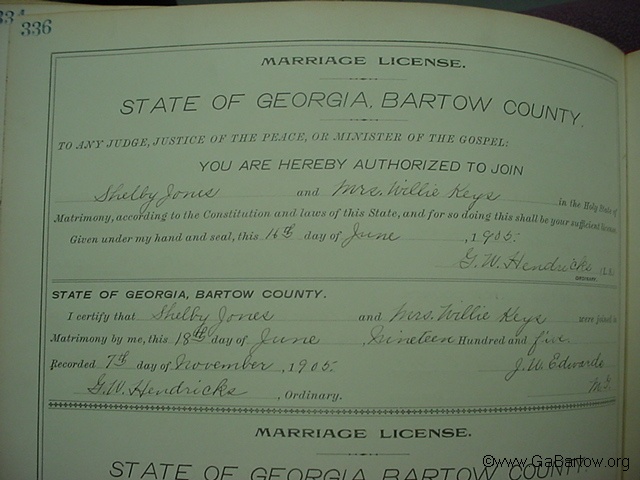 336
MARRIAGE LICENSE.
STATE OF GEORGIA, BARTOW COUNTY.
TO ANY JUDGE, JUSTICE OF THE PEACE, OR MINISTER OF THE GOSPEL:
YOU ARE HEREBY AUTHORIZED TO JOIN
Shelby Jones and Mrs. Willie Keys in the Holy State of
Matrimony, according to the Constitution and laws of this State, and for so doing this shall be your sufficient license.
Given under my hand and seal, this 16th day of June, 1905.
G. W. Hendricks (L.S.)
ORDINARY.
STATE OF GEORGIA, BARTOW COUNTY.
I certify that Shelby Jones and Mrs. Willie Keys were joined in
Matrimony by me, this 18th day of June, Nineteen Hundred and five.
Recorded 7th day of November, 1905. J. W. Edwards
G. W. Hendricks, Ordinary. M. G.
MARRIAGE LICENSE.
STATE OF GEORGIA, BARTOW COUNTY.
©www.GaBartow.org